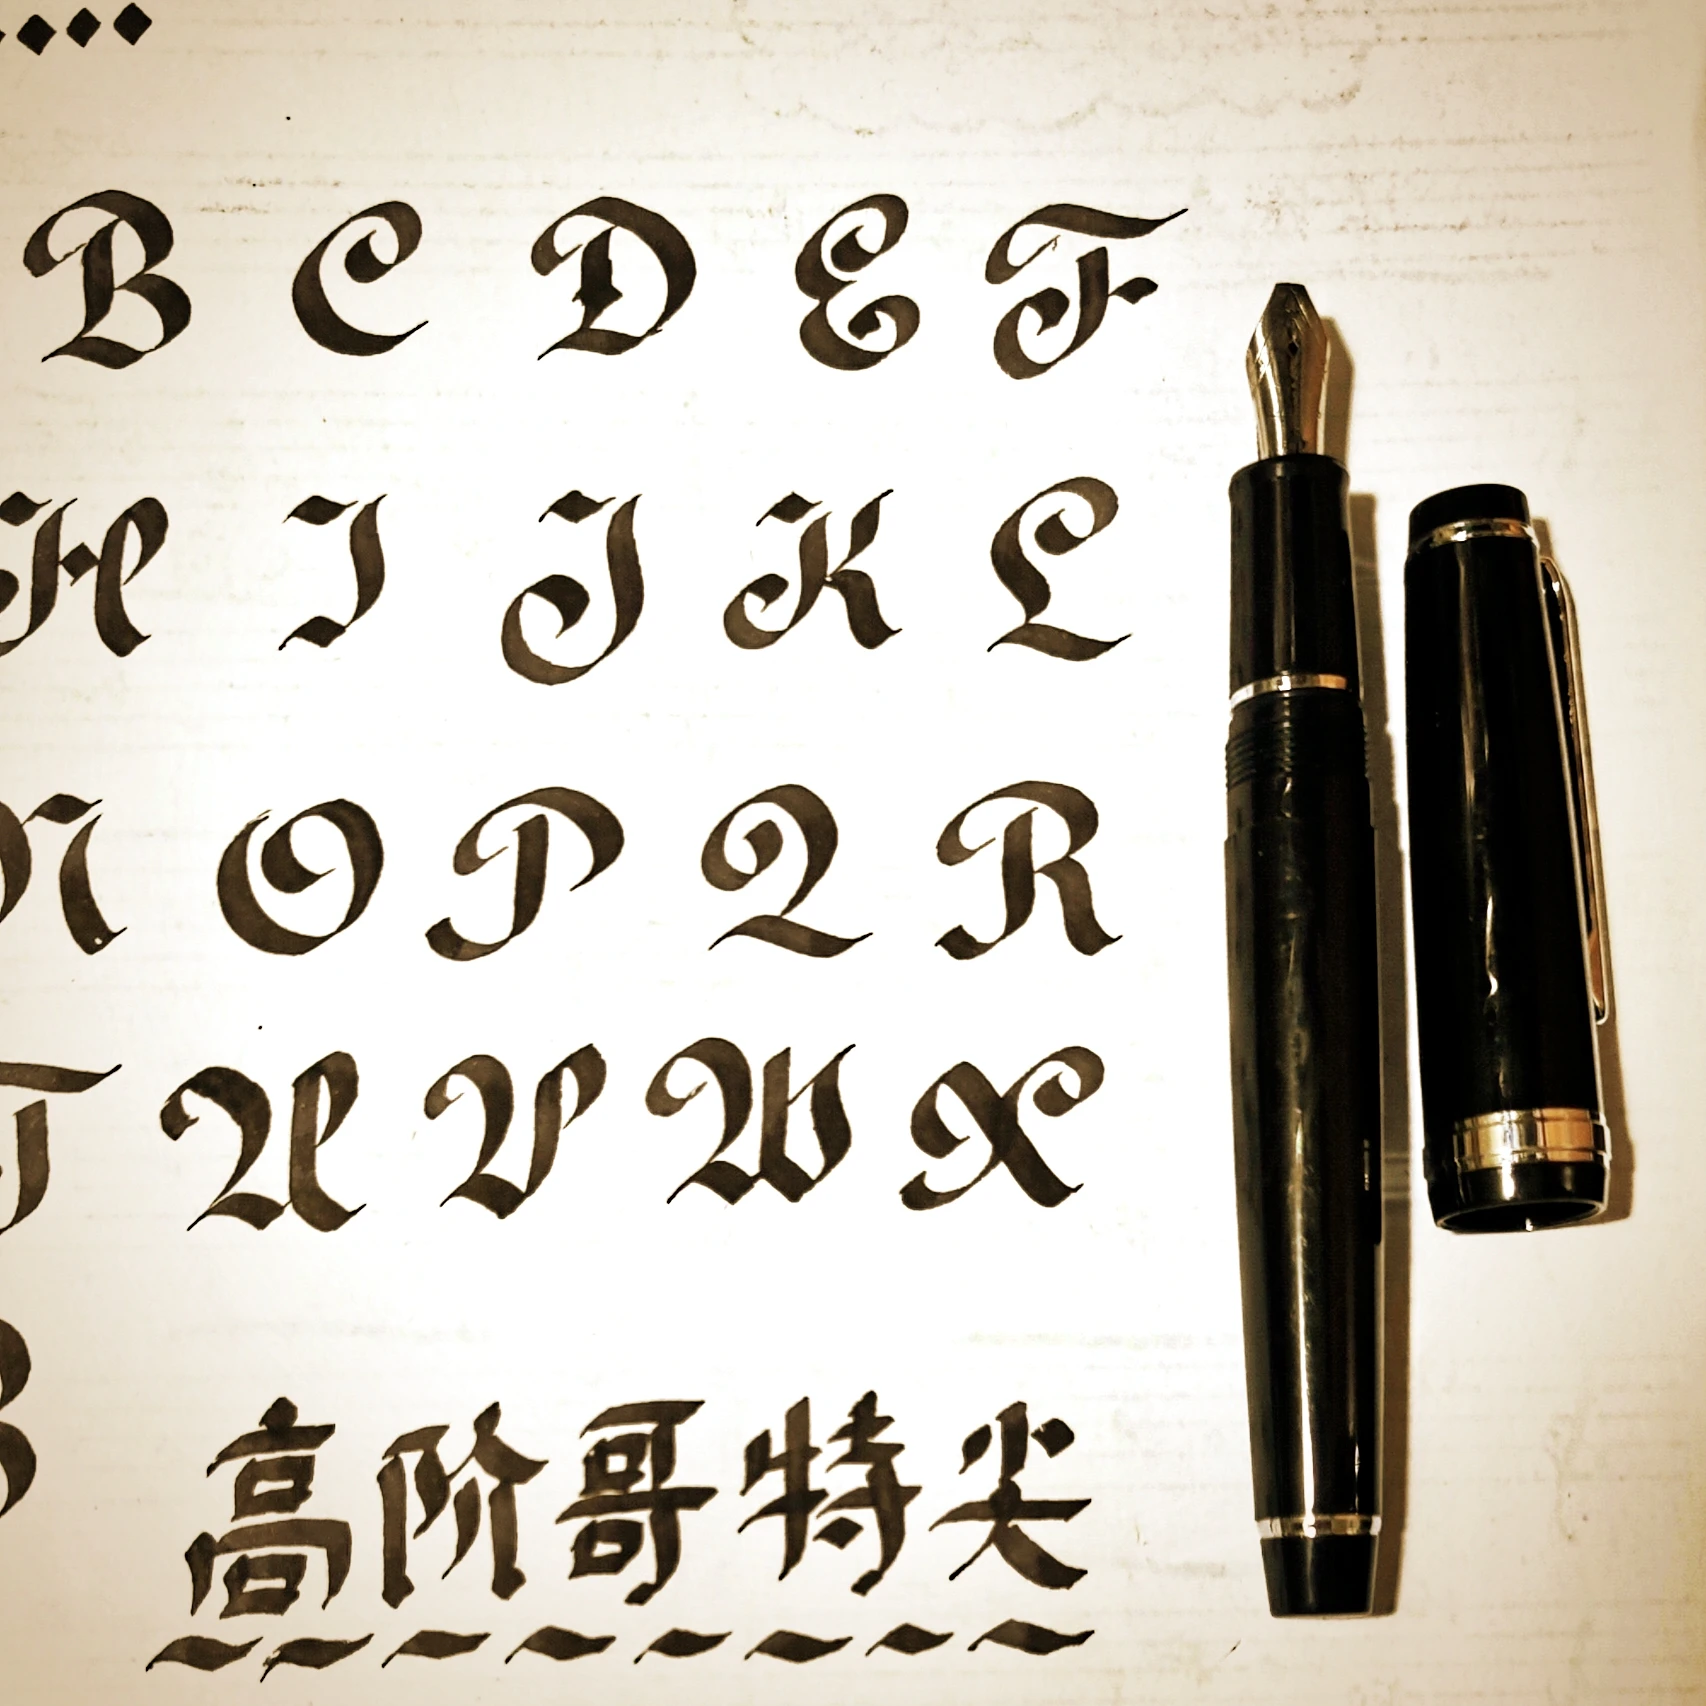 B C D E F
H I J K L
N O P Q R
T U V W X
高阶哥特尖